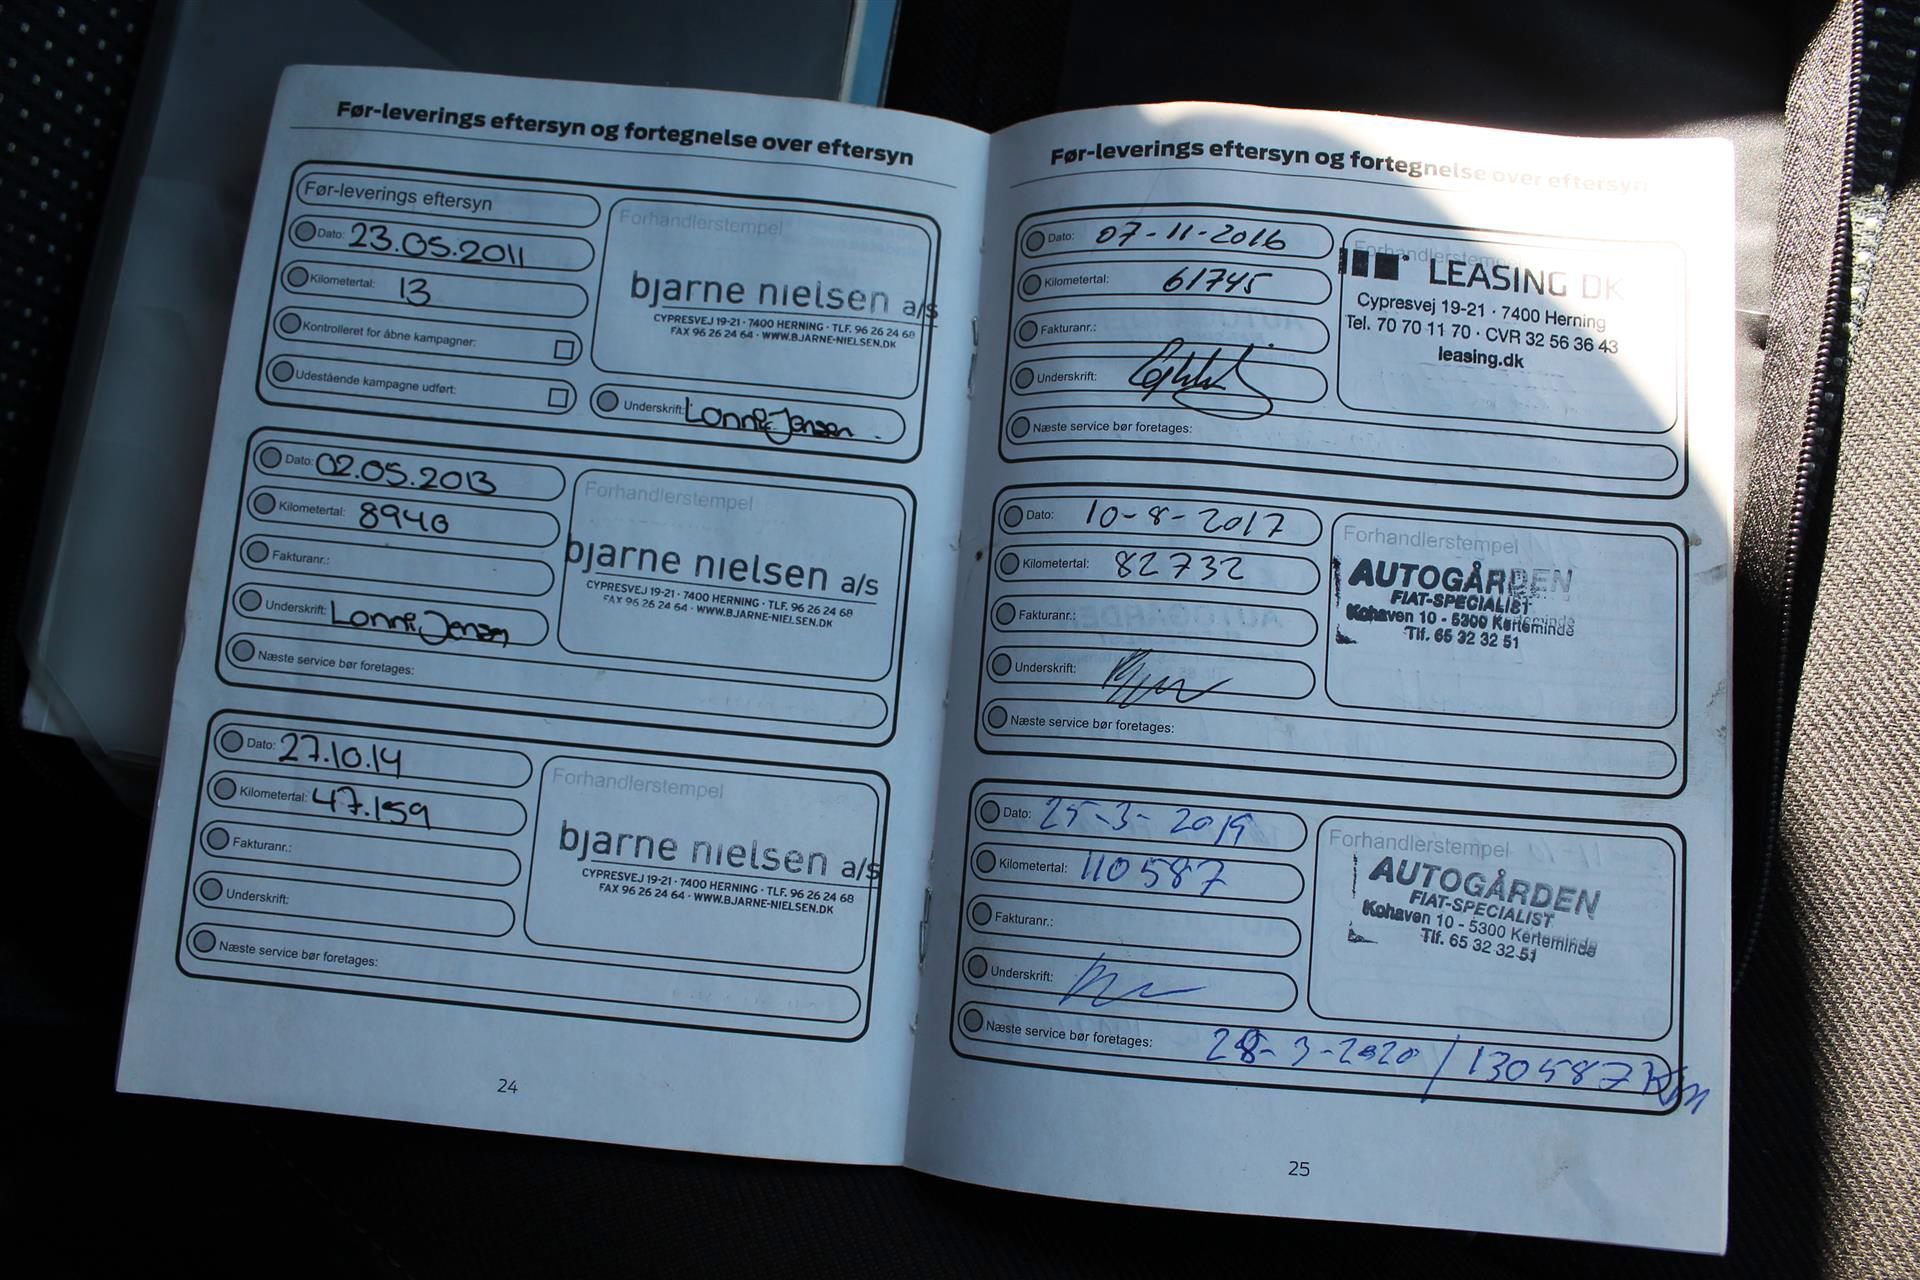 Før-leverings eftersyn og fortegnelse over eftersyn
Før-leverings eftersyn
Dato: 23.05.2011
Kilometertal: 13
Kontrolleret for åbne kampagner:
Udestående kampagne udført:
Forhandlerstempel
bjarne nielsen a/s
CYPRESVEJ 19-21 · 7400 HERNING · TLF. 96 26 24 68
FAX 96 26 24 64 · WWW.BJARNE-NIELSEN.DK
Underskrift: Lonnie Jensen
Dato: 02.05.2013
Kilometertal:
Fakturanr.:
Underskrift: Lonnie Jensen
Næste service bør foretages:
Forhandlerstempel
bjarne nielsen a/s
CYPRESVEJ 19-21 · 7400 HERNING · TLF. 96 26 24 68
FAX 96 26 24 64 · WWW.BJARNE-NIELSEN.DK
Dato: 27.10.14
Kilometertal: 47.159
Fakturanr.:
Underskrift:
Næste service bør foretages:
Forhandlerstempel
bjarne nielsen a/s
CYPRESVEJ 19-21 · 7400 HERNING · TLF. 96 26 24 68
FAX 96 26 24 64 · WWW.BJARNE-NIELSEN.DK
24
Før-leverings eftersyn og fortegnelse over eftersyn
Dato: 07-11-2016
Kilometertal: 61745
Fakturanr.:
Underskrift:
Næste service bør foretages:
Forhandlerstempel
LEASING DK
Cypresvej 19-21 · 7400 Herning
Tel. 70 70 11 70 · CVR 32 56 36 43
leasing.dk
Dato: 10-8-2017
Kilometertal: 82732
Fakturanr.:
Underskrift:
Næste service bør foretages:
Forhandlerstempel
AUTOGÅRDEN
FIAT-SPECIALIST
Kohaven 10 - 5300 Kerteminde
Tlf. 65 32 32 51
Dato: 25-3-2019
Kilometertal: 110587
Fakturanr.:
Underskrift:
Næste service bør foretages: 28-3-2020 / 130587 Km
Forhandlerstempel
AUTOGÅRDEN
FIAT-SPECIALIST
Kohaven 10 - 5300 Kerteminde
Tlf. 65 32 32 51
25